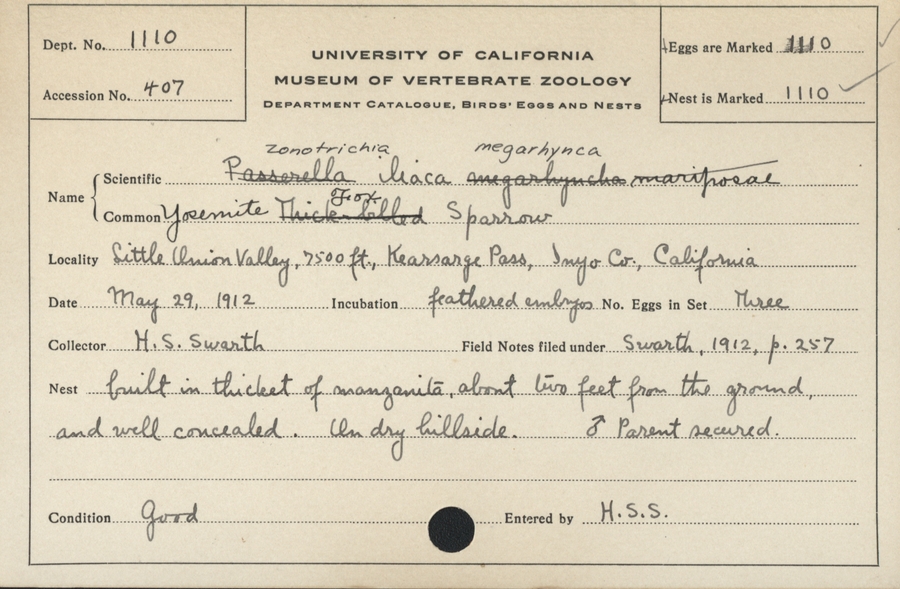 Dept. No. 1110
Accession No. 407
UNIVERSITY OF CALIFORNIA
MUSEUM OF VERTEBRATE ZOOLOGY
DEPARTMENT CATALOGUE, BIRDS' EGGS AND NESTS
Eggs are Marked 1110
Nest is Marked 1110
zonotrichia megarhynca
Name
Scientific Passerella iliaca megarhyncha mariposae
Fox
Common Yosemite Thick-billed Sparrow
Locality Little Union Valley, 7500 ft., Kearsarge Pass, Inyo Co., California
Date May 29, 1912 Incubation feathered embryos No. Eggs in Set Three
Collector H. S. Swarth Field Notes filed under Swarth, 1912, p. 257
Nest built in thicket of manzanita, about two feet from the ground,
and well concealed. On dry hillside. ♂ Parent secured.
Condition Good Entered by H.S.S.